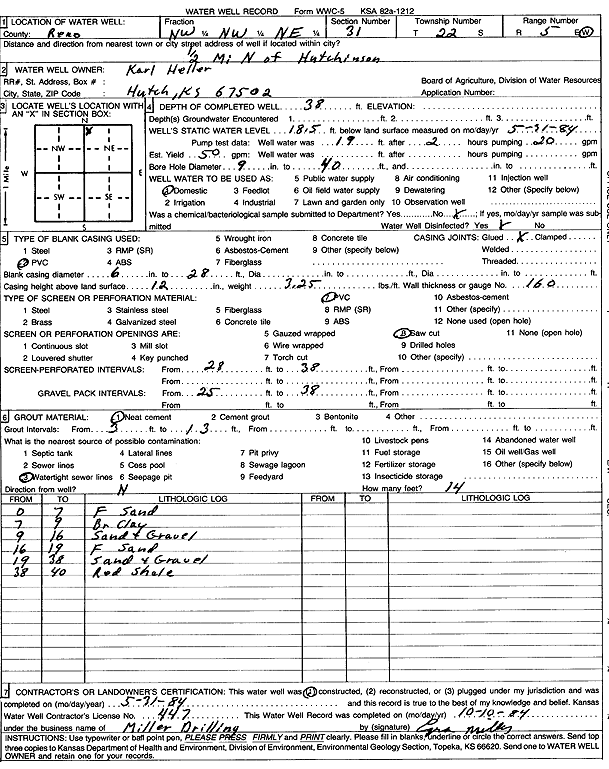 WATER WELL RECORD Form WWC-5 KSA 82a-1212
1 LOCATION OF WATER WELL: Fraction Section Number Township Number Range Number
County: Reno NW ¼ NW ¼ NE ¼ 31 T 22 S R 5 E/W
Distance and direction from nearest town or city street address of well if located within city?
1/2 Mi N of Hutchinson
2 WATER WELL OWNER: Karl Heller
RR#, St. Address, Box # : Board of Agriculture, Division of Water Resources
City, State, ZIP Code : Hutch, KS 67502 Application Number:
3 LOCATE WELL'S LOCATION WITH AN "X" IN SECTION BOX:
N
X
NW NE
W E
SW SE
S
1 Mile
4 DEPTH OF COMPLETED WELL 38 ft. ELEVATION:
Depth(s) Groundwater Encountered 1. ft. 2. ft. 3. ft.
WELL'S STATIC WATER LEVEL 18.5 ft. below land surface measured on mo/day/yr 5-31-84
Pump test data: Well water was 19 ft. after 2 hours pumping 20 gpm
Est. Yield 50 gpm: Well water was ft. after hours pumping gpm
Bore Hole Diameter 9 in. to 40 ft., and in. to ft.
WELL WATER TO BE USED AS: 5 Public water supply 8 Air conditioning 11 Injection well
1 Domestic 3 Feedlot 6 Oil field water supply 9 Dewatering 12 Other (Specify below)
2 Irrigation 4 Industrial 7 Lawn and garden only 10 Observation well
Was a chemical/bacteriological sample submitted to Department? Yes No X; If yes, mo/day/yr sample was sub-
mitted Water Well Disinfected? Yes X No
5 TYPE OF BLANK CASING USED: 5 Wrought iron 8 Concrete tile CASING JOINTS: Glued X Clamped
1 Steel 3 RMP (SR) 6 Asbestos-Cement 9 Other (specify below) Welded
2 PVC 4 ABS 7 Fiberglass Threaded.
Blank casing diameter 6 in. to 28 ft., Dia in. to ft., Dia in. to ft.
Casing height above land surface 12 in., weight 3.25 lbs./ft. Wall thickness or gauge No. 160
TYPE OF SCREEN OR PERFORATION MATERIAL: 7 PVC 10 Asbestos-cement
1 Steel 3 Stainless steel 5 Fiberglass 8 RMP (SR) 11 Other (specify)
2 Brass 4 Galvanized steel 6 Concrete tile 9 ABS 12 None used (open hole)
SCREEN OR PERFORATION OPENINGS ARE: 5 Gauzed wrapped 8 Saw cut 11 None (open hole)
1 Continuous slot 3 Mill slot 6 Wire wrapped 9 Drilled holes
2 Louvered shutter 4 Key punched 7 Torch cut 10 Other (specify)
SCREEN-PERFORATED INTERVALS: From 28 ft. to 38 ft., From ft. to ft.
From ft. to ft., From ft. to ft.
GRAVEL PACK INTERVALS: From 25 ft. to 38 ft., From ft. to ft.
From ft. to ft., From ft. to ft.
6 GROUT MATERIAL: 1 Neat cement 2 Cement grout 3 Bentonite 4 Other
Grout Intervals: From 3 ft. to 13 ft., From ft. to ft., From ft. to ft.
What is the nearest source of possible contamination: 10 Livestock pens 14 Abandoned water well
1 Septic tank 4 Lateral lines 7 Pit privy 11 Fuel storage 15 Oil well/Gas well
2 Sewer lines 5 Cess pool 8 Sewage lagoon 12 Fertilizer storage 16 Other (specify below)
3 Watertight sewer lines 6 Seepage pit 9 Feedyard 13 Insecticide storage
Direction from well? N How many feet? 14
FROM TO LITHOLOGIC LOG FROM TO LITHOLOGIC LOG
0 7 F Sand
7 9 Br Clay
9 16 Sand & Gravel
16 19 F Sand
19 38 Sand & Gravel
38 40 Red Shale
7 CONTRACTOR'S OR LANDOWNER'S CERTIFICATION: This water well was (1) constructed, (2) reconstructed, or (3) plugged under my jurisdiction and was
completed on (mo/day/year) 5-31-84 and this record is true to the best of my knowledge and belief. Kansas
Water Well Contractor's License No. 447 This Water Well Record was completed on (mo/day/yr) 10-10-84
under the business name of Miller Drilling by (signature)
INSTRUCTIONS: Use typewriter or ball point pen, PLEASE PRESS FIRMLY and PRINT clearly. Please fill in blanks, underline or circle the correct answers. Send top
three copies to Kansas Department of Health and Environment, Division of Environment, Environmental Geology Section, Topeka, KS 66620. Send one to WATER WELL
OWNER and retain one for your records.